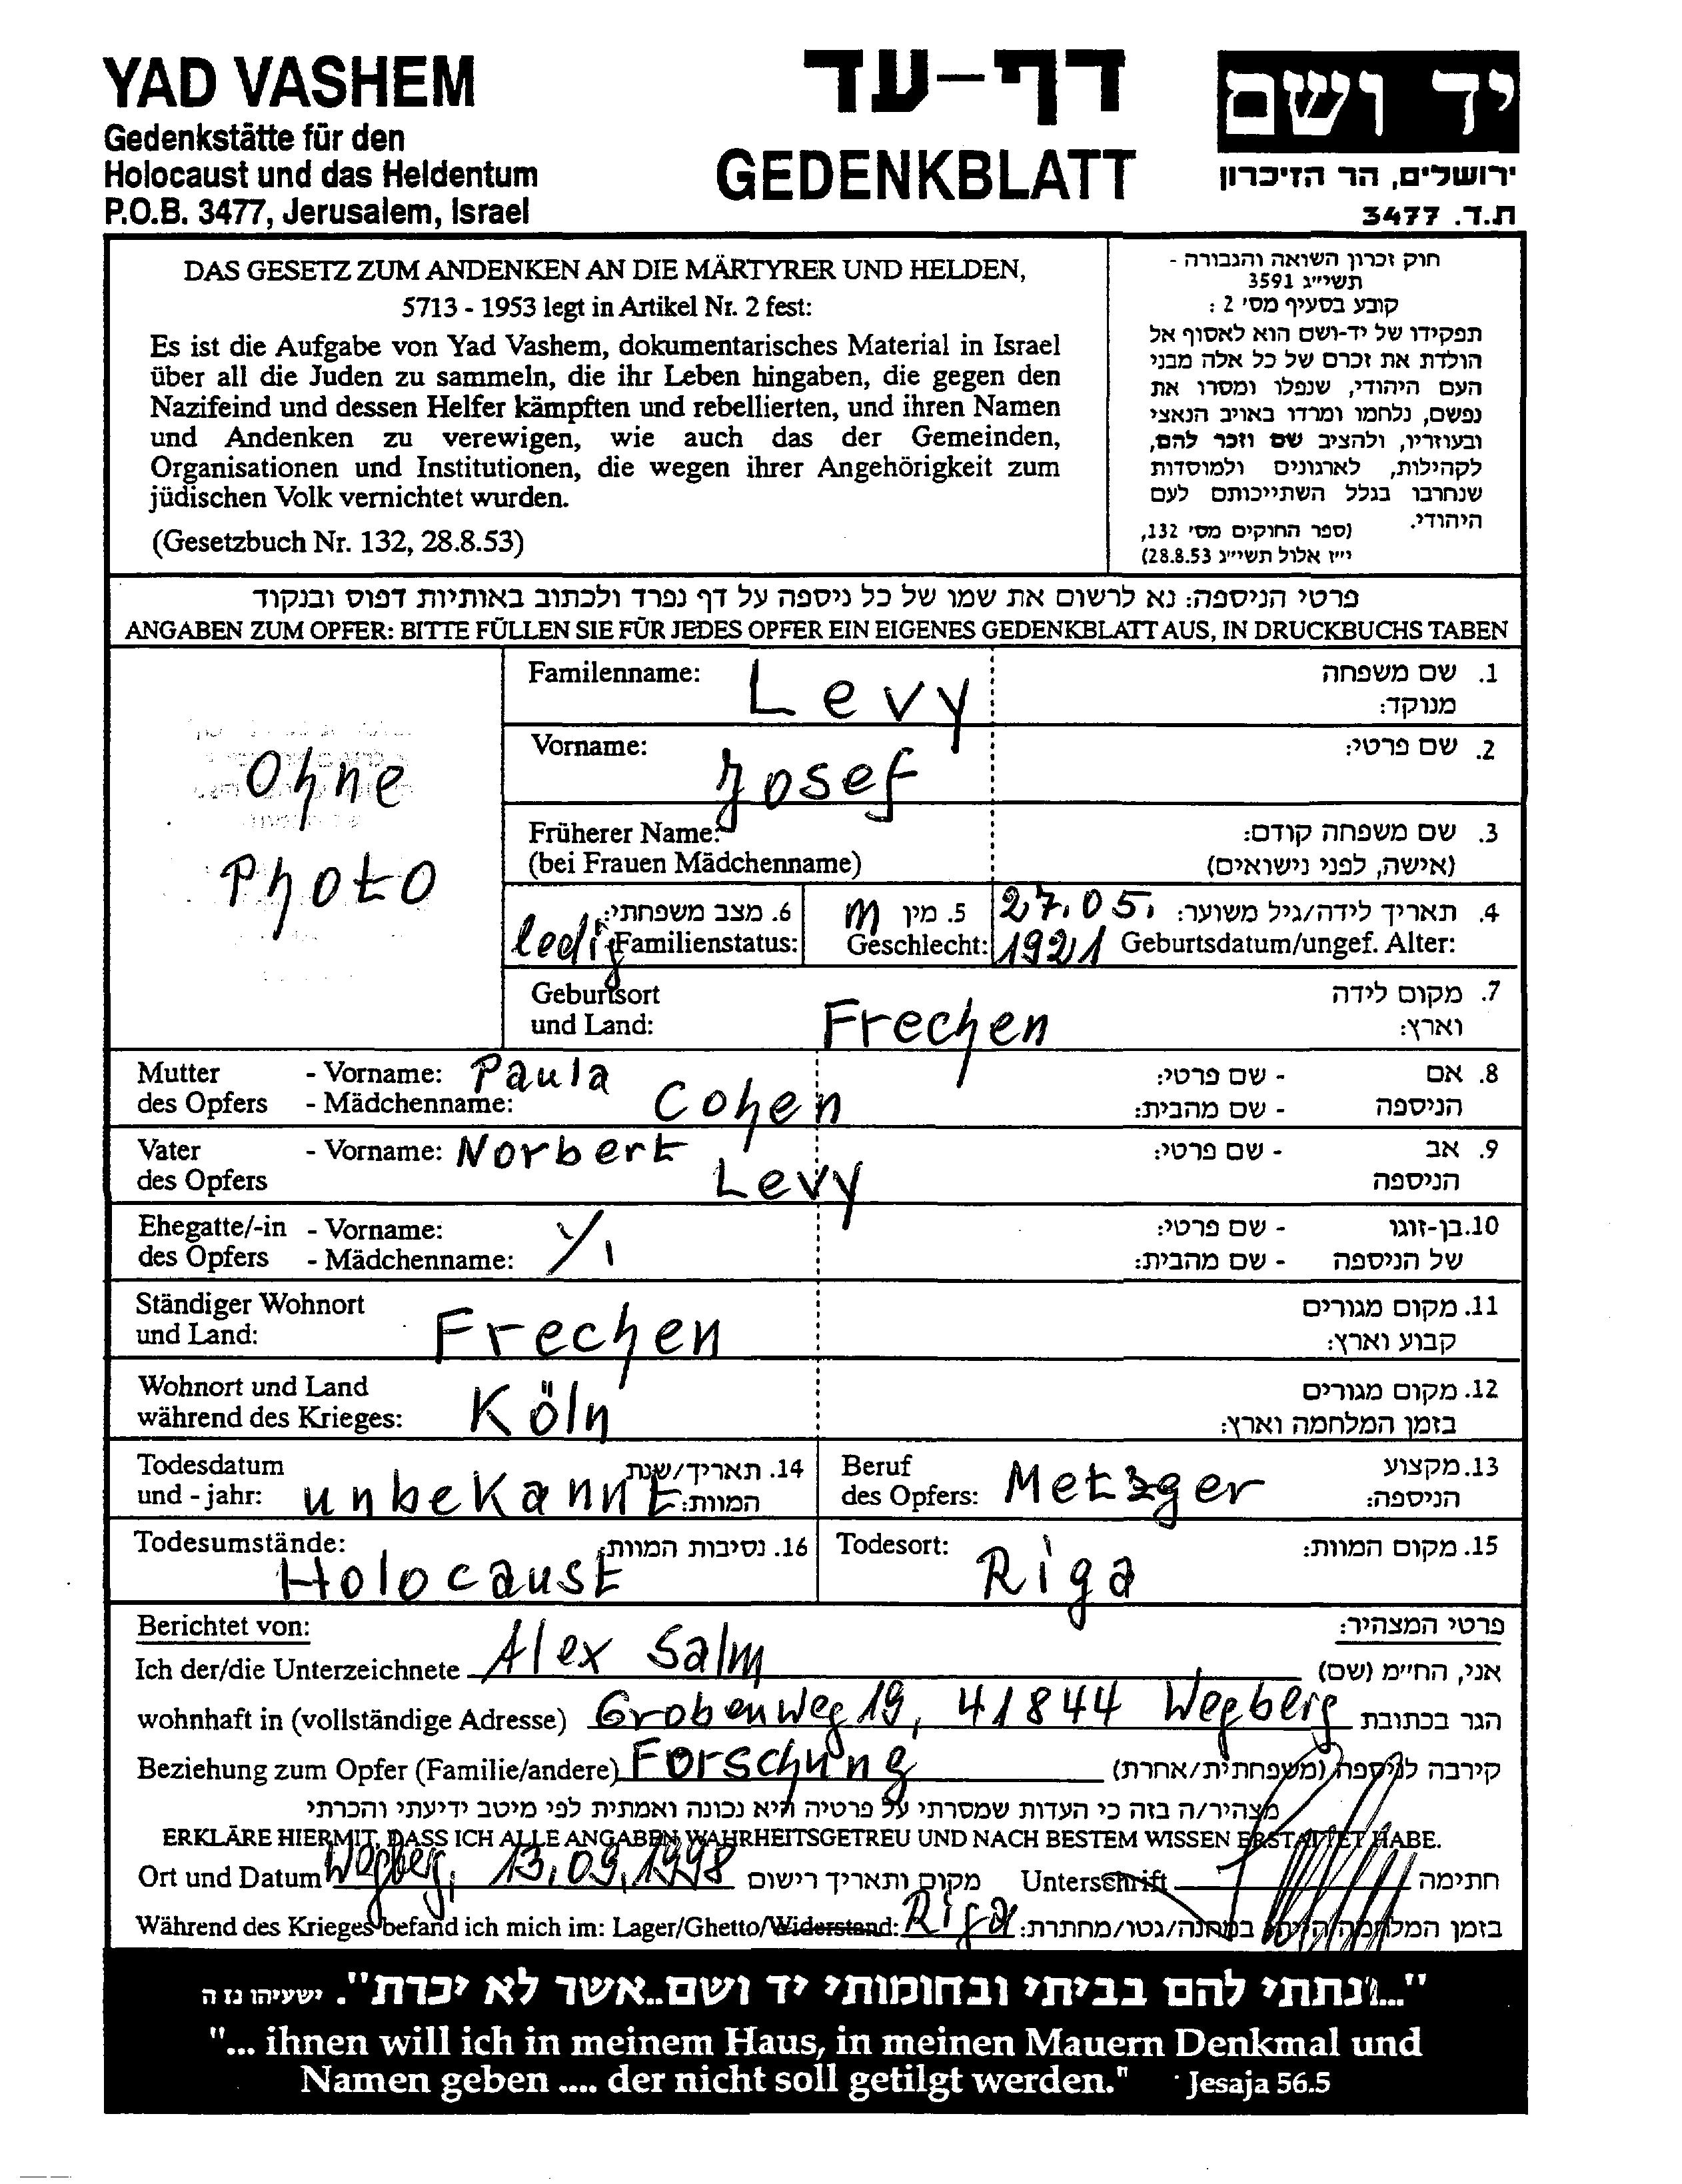 YAD VASHEM
Gedenkstätte für den
Holocaust und das Heldentum
P.O.B. 3477, Jerusalem, Israel
דף-עד
GEDENKBLATT
יד ושם
ירושלים, הר הזיכרון
ת.ד. 3477
DAS GESETZ ZUM ANDENKEN AN DIE MÄRTYRER UND HELDEN,
5713 - 1953 legt in Artikel Nr. 2 fest:
Es ist die Aufgabe von Yad Vashem, dokumentarisches Material in Israel
über all die Juden zu sammeln, die ihr Leben hingaben, die gegen den
Nazifeind und dessen Helfer kämpften und rebellierten, und ihren Namen
und Andenken zu verewigen, wie auch das der Gemeinden,
Organisationen und Institutionen, die wegen ihrer Angehörigkeit zum
jüdischen Volk vernichtet wurden.
(Gesetzbuch Nr. 132, 28.8.53)
חוק זכרון השואה והגבורה -
תשי״ג 3591
קובע בסעיף מס׳ 2 :
תפקידו של יד-ושם הוא לאסוף אל
הולדת את זכרם של כל אלה מבני
העם היהודי, שנפלו ומסרו את
נפשם, נלחמו ומרדו באויב הנאצי
ובעוזריו, ולהציב שם וזכר להם,
לקהילות, לארגונים ולמוסדות
שנחרבו בגלל השתייכותם לעם
היהודי.
(ספר החוקים מס׳ 132,
י״ז אלול תשי״ג 28.8.53)
פרטי הניספה: נא לרשום את שמו של כל ניספה על דף נפרד ולכתוב באותיות דפוס ובנקוד
ANGABEN ZUM OPFER: BITTE FÜLLEN SIE FÜR JEDES OPFER EIN EIGENES GEDENKBLATT AUS, IN DRUCKBUCHS TABEN
Ohne
Photo
Familenname: Levy 1. שם משפחה
מנוקד:
Vorname: Josef 2. שם פרטי:
Früherer Name: 3. שם משפחה קודם:
(bei Frauen Mädchenname) (אישה, לפני נישואים)
6. מצב משפחתי: 5. מין m 27.05. 4. תאריך לידה/גיל משוער:
ledig Familienstatus: Geschlecht: 1921 Geburtsdatum/ungef. Alter:
Geburtsort 7. מקום לידה
und Land: Frechen וארץ:
Mutter - Vorname: Paula - שם פרטי: 8. אם
des Opfers - Mädchenname: Cohen - שם מהבית: הניספה
Vater - Vorname: Norbert - שם פרטי: 9. אב
des Opfers Levy הניספה
Ehegatte/-in - Vorname: - שם פרטי: 10.בן-זוגו
des Opfers - Mädchenname: - שם מהבית: של הניספה
Ständiger Wohnort 11. מקום מגורים
und Land: Frechen קבוע וארץ:
Wohnort und Land 12. מקום מגורים
während des Krieges: Köln בזמן המלחמה וארץ:
Todesdatum 14. תאריך/שנת Beruf 13.מקצוע
und - jahr: unbekannt המוות: des Opfers: Metzger הניספה:
Todesumstände: Holocaust 16. נסיבות המוות: Todesort: Riga 15. מקום המוות:
Berichtet von: פרטי המצהיר:
Ich der/die Unterzeichnete Alex Salm אני, הח״מ (שם)
wohnhaft in (vollständige Adresse) Grobenweg 19, 41844 Wegberg הגר בכתובת
Beziehung zum Opfer (Familie/andere) Forschung קירבה לניספה (משפחתית/אחרת)
מצהיר/ה בזה כי העדות שמסרתי על פרטיה היא נכונה ואמתית לפי מיטב ידיעתי והכרתי
ERKLÄRE HIERMIT, DASS ICH ALLE ANGABEN WAHRHEITSGETREU UND NACH BESTEM WISSEN ERSTATTET HABE.
Ort und Datum Wegberg, 13.09.1998 מקום ותאריך רישום Unterschrift חתימה
Während des Krieges befand ich mich im: Lager/Ghetto/Widerstand: Riga בזמן המלחמה הייתי במחנה/גטו/מחתרת:
"...ונתתי להם בביתי ובחומותי יד ושם..אשר לא יכרת". ישעיהו נז ה
"... ihnen will ich in meinem Haus, in meinen Mauern Denkmal und
Namen geben .... der nicht soll getilgt werden." Jesaja 56.5